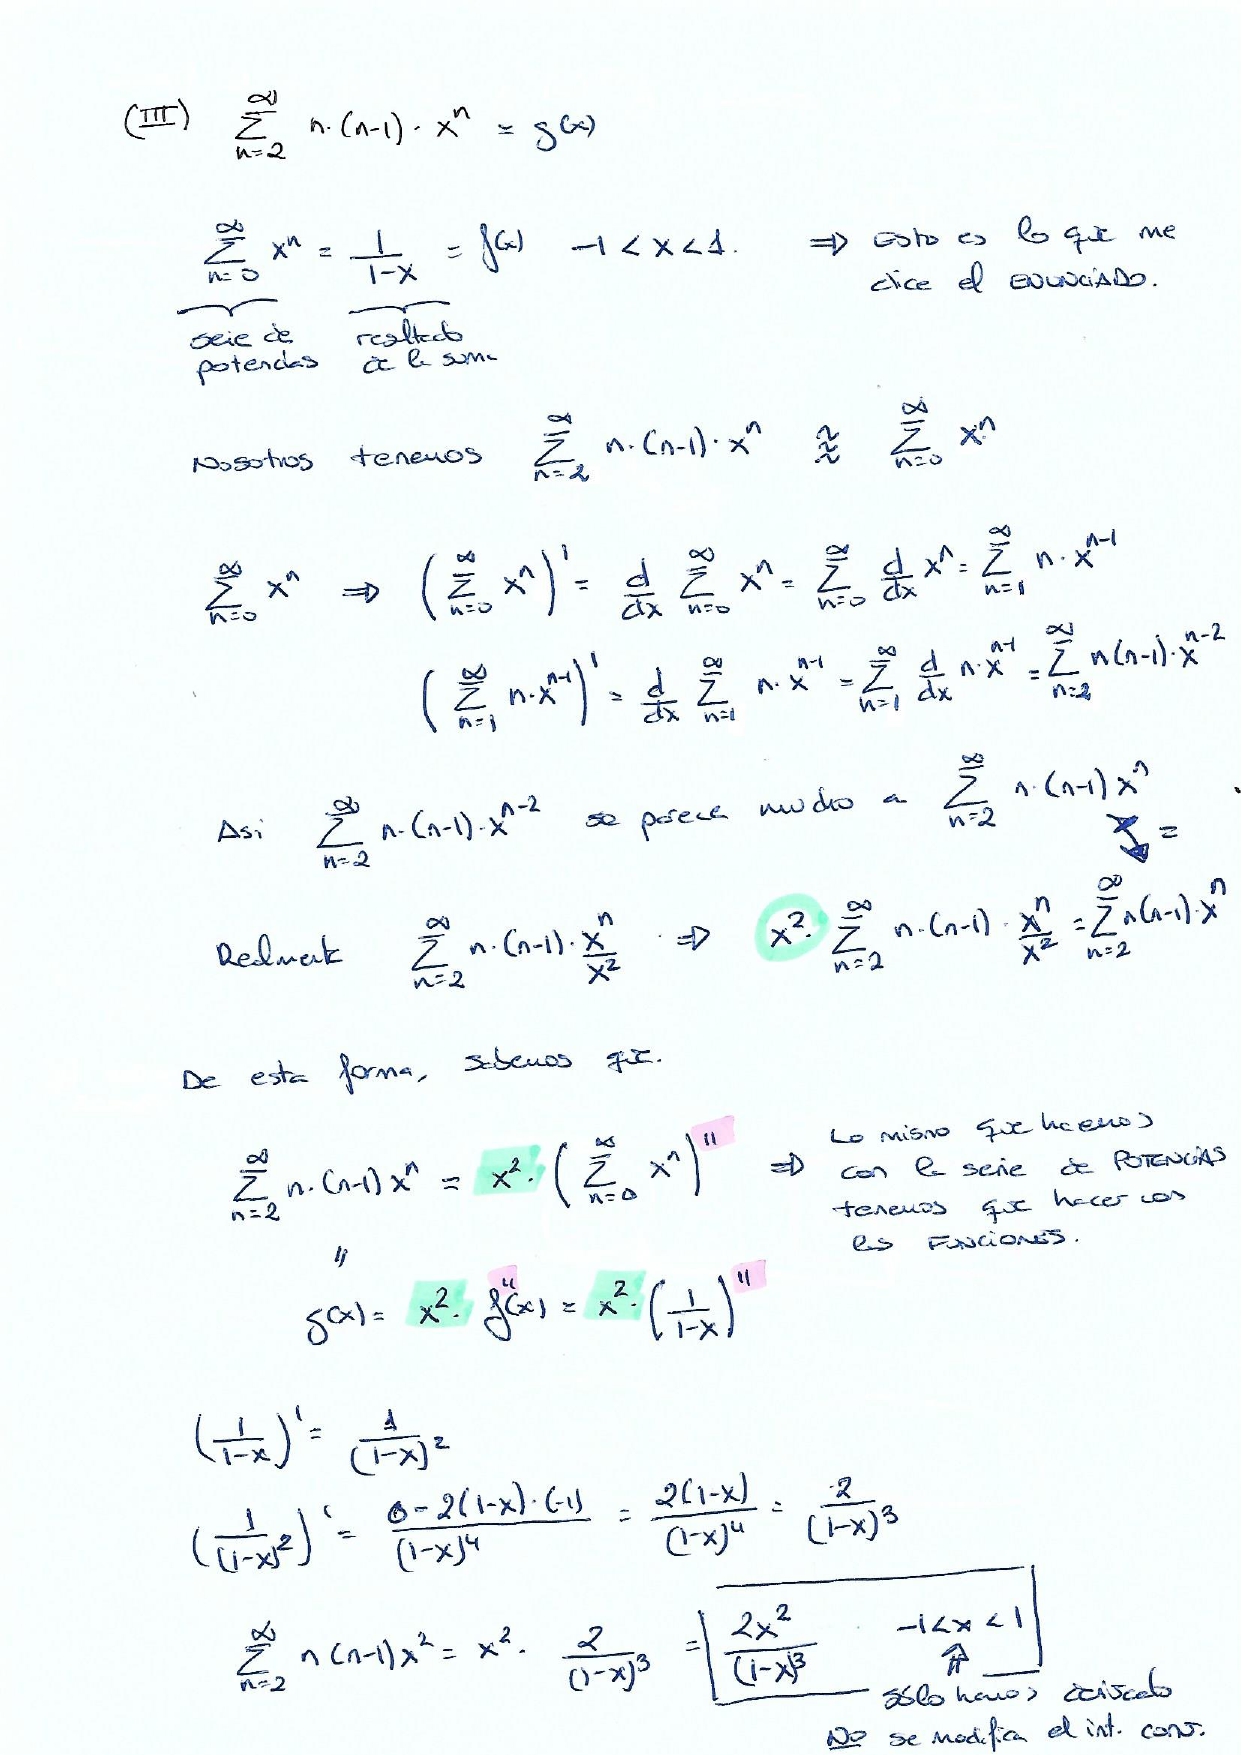 (III) ∑_{n=2}^{∞} n·(n-1)·xⁿ = g(x)
∑_{n=0}^{∞} xⁿ = 1/(1-x) = f(x) -1 < x < 1. ⇒ esto es lo que me
dice el ENUNCIADO.
serie de potencias
resultado de la suma
Nosotros tenemos ∑_{n=2}^{∞} n·(n-1)·xⁿ ≈ ∑_{n=0}^{∞} xⁿ
∑_{n=0}^{∞} xⁿ ⇒ (∑_{n=0}^{∞} xⁿ)' = d/dx ∑_{n=0}^{∞} xⁿ = ∑_{n=0}^{∞} d/dx xⁿ = ∑_{n=1}^{∞} n·x^{n-1}
(∑_{n=1}^{∞} n·x^{n-1})' = d/dx ∑_{n=1}^{∞} n·x^{n-1} = ∑_{n=1}^{∞} d/dx n·x^{n-1} = ∑_{n=2}^{∞} n(n-1)·x^{n-2}
Asi ∑_{n=2}^{∞} n·(n-1)·x^{n-2} se parece mucho a ∑_{n=2}^{∞} n·(n-1) xⁿ
=
Realmente ∑_{n=2}^{∞} n·(n-1)·xⁿ/x² ⇒ x²· ∑_{n=2}^{∞} n·(n-1)·xⁿ/x² = ∑_{n=2}^{∞} n(n-1)·xⁿ
De esta forma, sabemos que.
∑_{n=2}^{∞} n·(n-1) xⁿ = x²·(∑_{n=0}^{∞} xⁿ)'' ⇒ Lo mismo que hacemos
con la serie de POTENCIAS
tenemos que hacer con
las FUNCIONES.
"
g(x) = x²· f''(x) = x²·(1/(1-x))''
(1/(1-x))' = 1/(1-x)²
(1/(1-x)²)' = (0-2(1-x)·(-1))/(1-x)⁴ = 2(1-x)/(1-x)⁴ = 2/(1-x)³
∑_{n=2}^{∞} n(n-1)x² = x²· 2/(1-x)³ = 2x²/(1-x)³ -1<x<1
sólo hemos derivado
NO se modifica el int. conv.